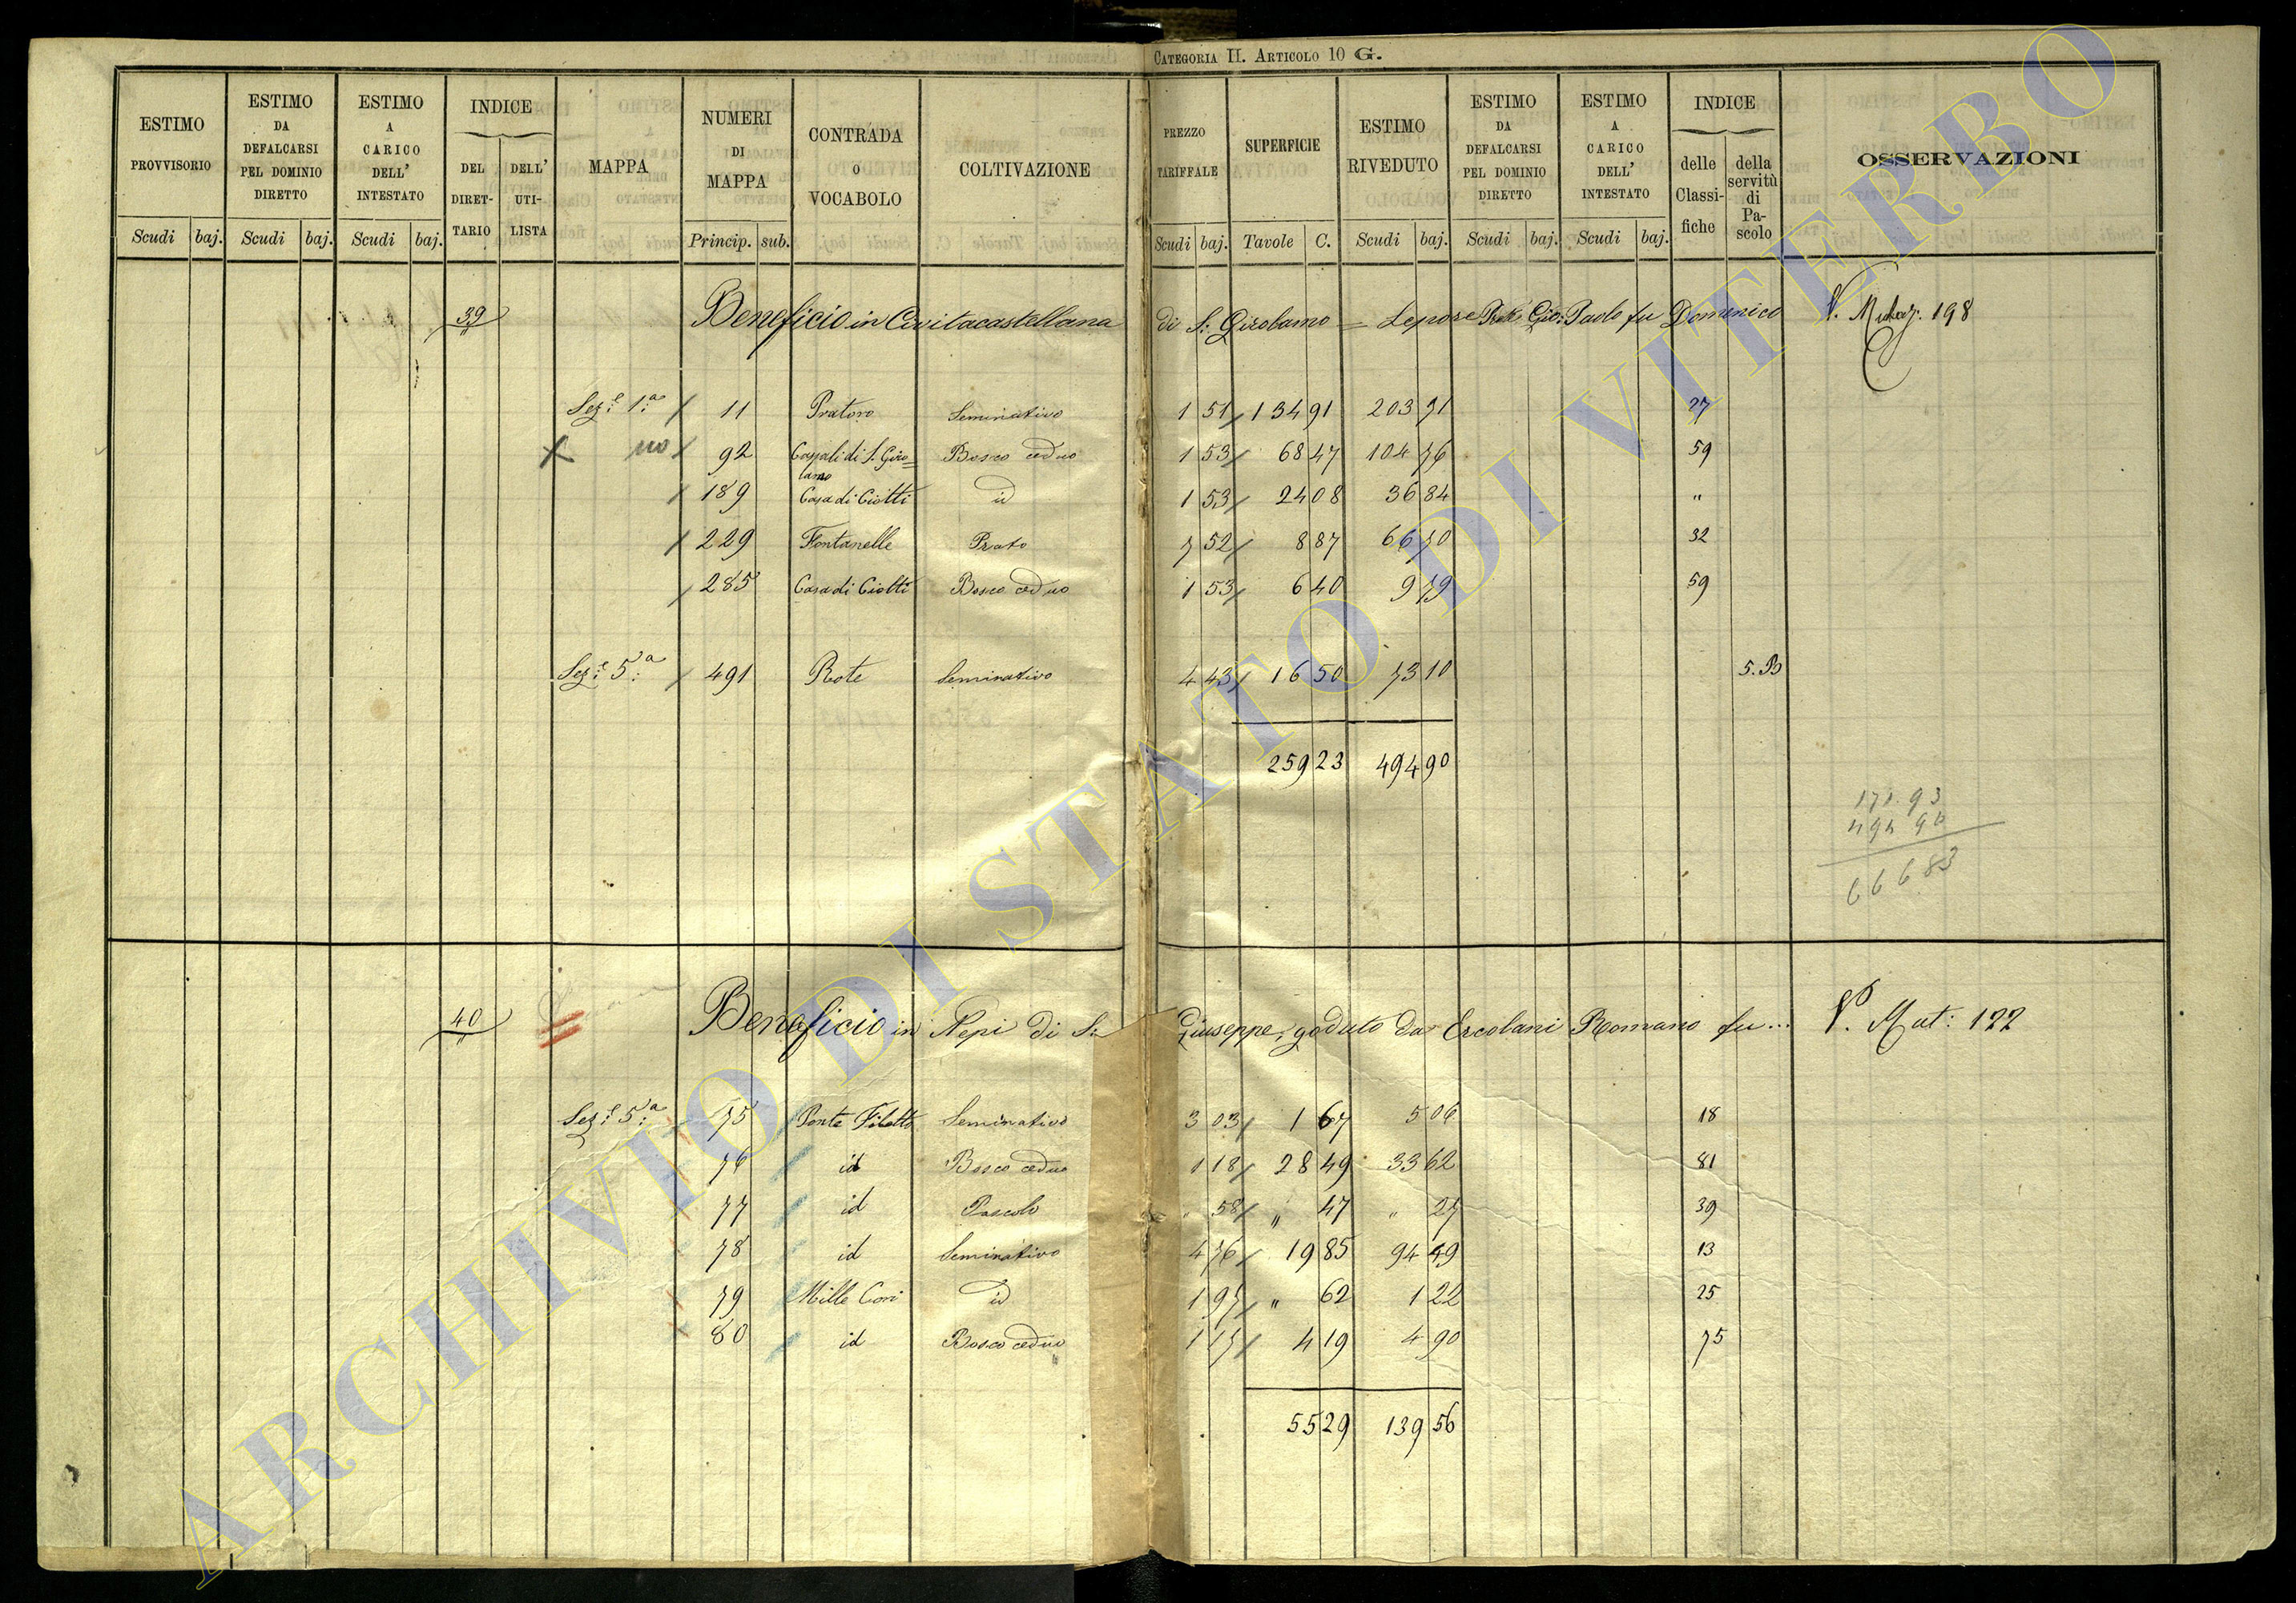 CATEGORIA II. ARTICOLO 10 G.
ESTIMO PROVVISORIO | ESTIMO DA DEFALCARSI PEL DOMINIO DIRETTO | ESTIMO A CARICO DELL' INTESTATO | INDICE | MAPPA | NUMERI DI MAPPA | CONTRADA O VOCABOLO | COLTIVAZIONE | PREZZO TARIFFALE | SUPERFICIE | ESTIMO RIVEDUTO | ESTIMO DA DEFALCARSI PEL DOMINIO DIRETTO | ESTIMO A CARICO DELL' INTESTATO | INDICE | OSSERVAZIONI
DEL DIRETTARIO | DELL' UTILISTA | delle Classifiche | della servitù di Pascolo
Scudi | baj. | Scudi | baj. | Scudi | baj. | Princip. | sub. | Scudi | baj. | Tavole | C. | Scudi | baj. | Scudi | baj. | Scudi | baj.
39 Beneficio in Civitacastellana di S: Girolamo = Lepore Gio: Paolo fu Domenico V. 198
Sez.e 1.a / 11 Pratoro Seminativo 1 51 / 134 91 203 71 27
X no / 92 Casali di S. Giro=
lamo Bosco ceduo 1 53 / 68 47 104 76 59
/ 189 Casa di Ciotti id 1 53 / 24 08 36 84 "
/ 229 Fontanelle Prato 7 52 / 8 87 66 70 32
/ 285 Casa di Ciotti Bosco ceduo 1 53 / 6 40 9 79 59
Sez.e 5.a / 491 Rote Seminativo 4 43 / 16 50 73 10 5.B
259 23 494 90
171.93
494 90
666 83
40 Beneficio in Nepi di S: Giuseppe, goduto da Ercolani Romano fu... V. Mat: 122
Sez.e 5.a 75 Ponte Filetto Seminativo 3 03 / 1 67 5 06 18
76 id Bosco ceduo 1 18 / 28 49 33 62 81
77 id Pascolo " 58 / " 47 " 27 39
78 id Seminativo 4 76 / 19 85 94 49 13
79 Mille Cori id 1 97 / " 62 1 22 25
80 id Bosco ceduo 1 17 / 4 19 4 90 75
55 29 139 56
ARCHIVIO DI STATO DI VITERBO